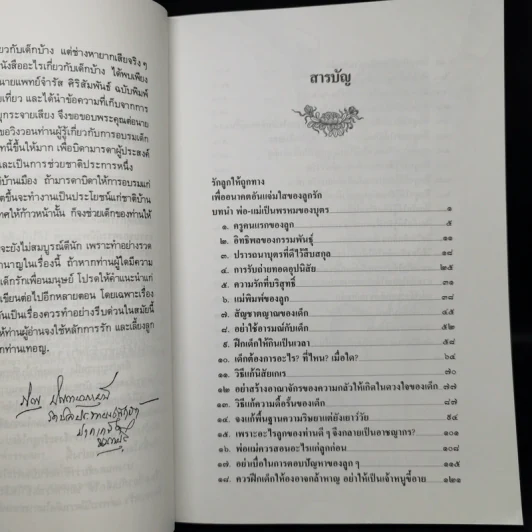 ยวกับเด็กบ้าง แต่ช่างหายากเสียจริง ๆ
นังสืออะไรเกี่ยวกับเด็กบ้าง ได้พบเพียง
นายแพทย์จำรัส ศิริสัมพันธ์ ฉบับพิมพ์
ยเที่ยว และได้นำข้อความที่เก็บจากการ
ยุกระจายเสียง จึงขอขอบพระคุณต่อนาย
ขอวิงวอนท่านผู้รู้เกี่ยวกับการอบรมเด็ก
ทนี้ขึ้นให้มาก เพื่อบิดามารดาผู้ประสงค์
และเป็นการช่วยชาติประการหนึ่ง
ติบ้านเมือง ถ้ามารดาบิดาให้การอบรมแก่
ตขึ้นจะทำงานเป็นประโยชน์แก่ชาติบ้าน
ทศให้ก้าวหน้านั้น ก็จงช่วยเด็กของท่านให้
จะยังไม่สมบูรณ์ดีนัก เพราะทำอย่างรวด
ำนาญในเรื่องนี้ ถ้าหากท่านผู้ใดมีความ
เด็กรักเพื่อนมนุษย์ โปรดให้คำแนะนำแก่
เขียนต่อไปอีกหลายตอน โดยเฉพาะเรื่อง
ันเป็นเรื่องควรทำอย่างรีบด่วนในสมัยนี้
ให้ท่านผู้อ่านจงใช้หลักการรัก และเลี้ยงลูก
กท่านเทอญ.
สารบัญ
รักลูกให้ถูกทาง
เพื่ออนาคตอันแจ่มใสของลูกรัก
บทนำ พ่อ-แม่เป็นพรหมของบุตร ๑
๑. ครูคนแรกของลูก ๕
๒. อิทธิพลของกรรมพันธุ์ ๑๑
๓. ปรารถนาบุตรที่ดีไว้สืบสกุล ๑๘
๔. การรับถ่ายทอดอุปนิสัย ๒๕
๕. ความรักที่บริสุทธิ์ ๓๑
๖. แม่พิมพ์ของลูก ๓๘
๗. สัญชาตญาณของเด็ก ๔๕
๘. อย่าใช้อารมณ์กับเด็ก ๕๒
๙. ฝึกเด็กให้กินเป็นเวลา ๕๘
๑๐. เด็กต้องการอะไร? ที่ไหน? เมื่อใด? ๖๔
๑๑. วิธีแก้นิสัยเกเร ๗๐
๑๒ อย่าสร้างอาณาจักรของความกลัวให้เกิดในดวงใจของเด็ก ๗๗
๑๓. วิธีแก้ความดื้อรั้นของเด็ก ๘๗
๑๔. จงแก้พื้นฐานความริษยาแต่ยังเยาว์วัย ๙๔
๑๕. เพราะอะไรลูกของท่านดี ๆ จึงกลายเป็นอาชญากร? ๑๐๑
๑๖. พ่อแม่ควรสอนอะไรแก่ลูกก่อน ๑๐๘
๑๗. อย่าเบื่อในการตอบปัญหาของลูก ๆ ๑๑๕
๑๘. ควรฝึกเด็กให้องอาจกล้าหาญ อย่าให้เป็นเจ้าหนูขี้อาย ๑๒๑